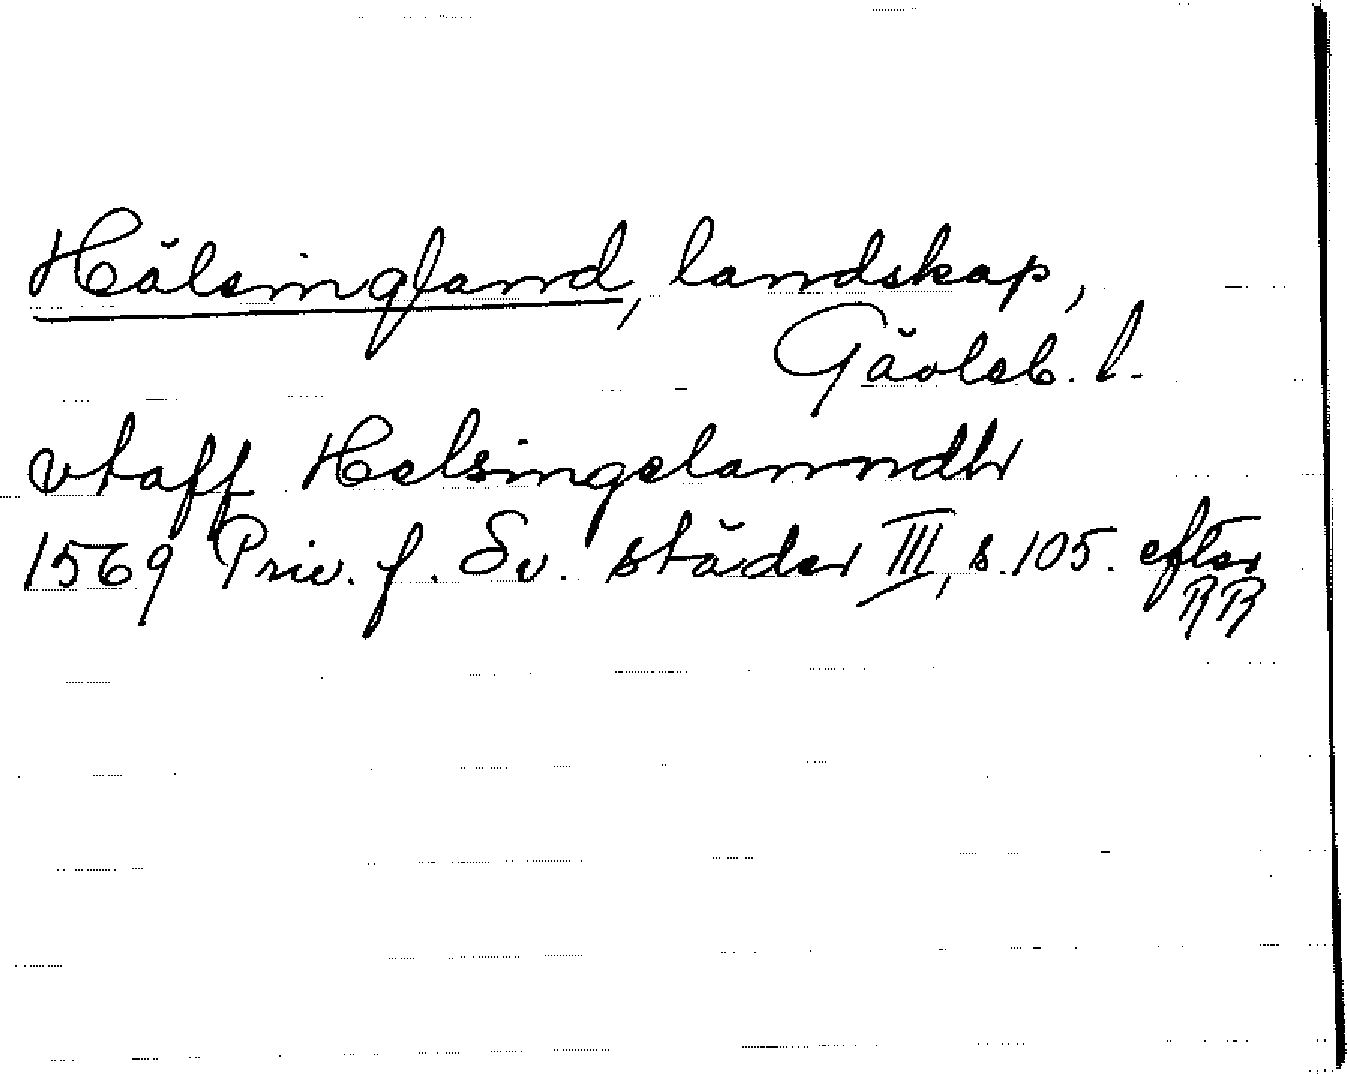 Hälsingland, landskap,
Gävleb. l.
vtaff Helsingelanndh
1569 Priv. f. Sv. städer III, s. 105. efter
RR